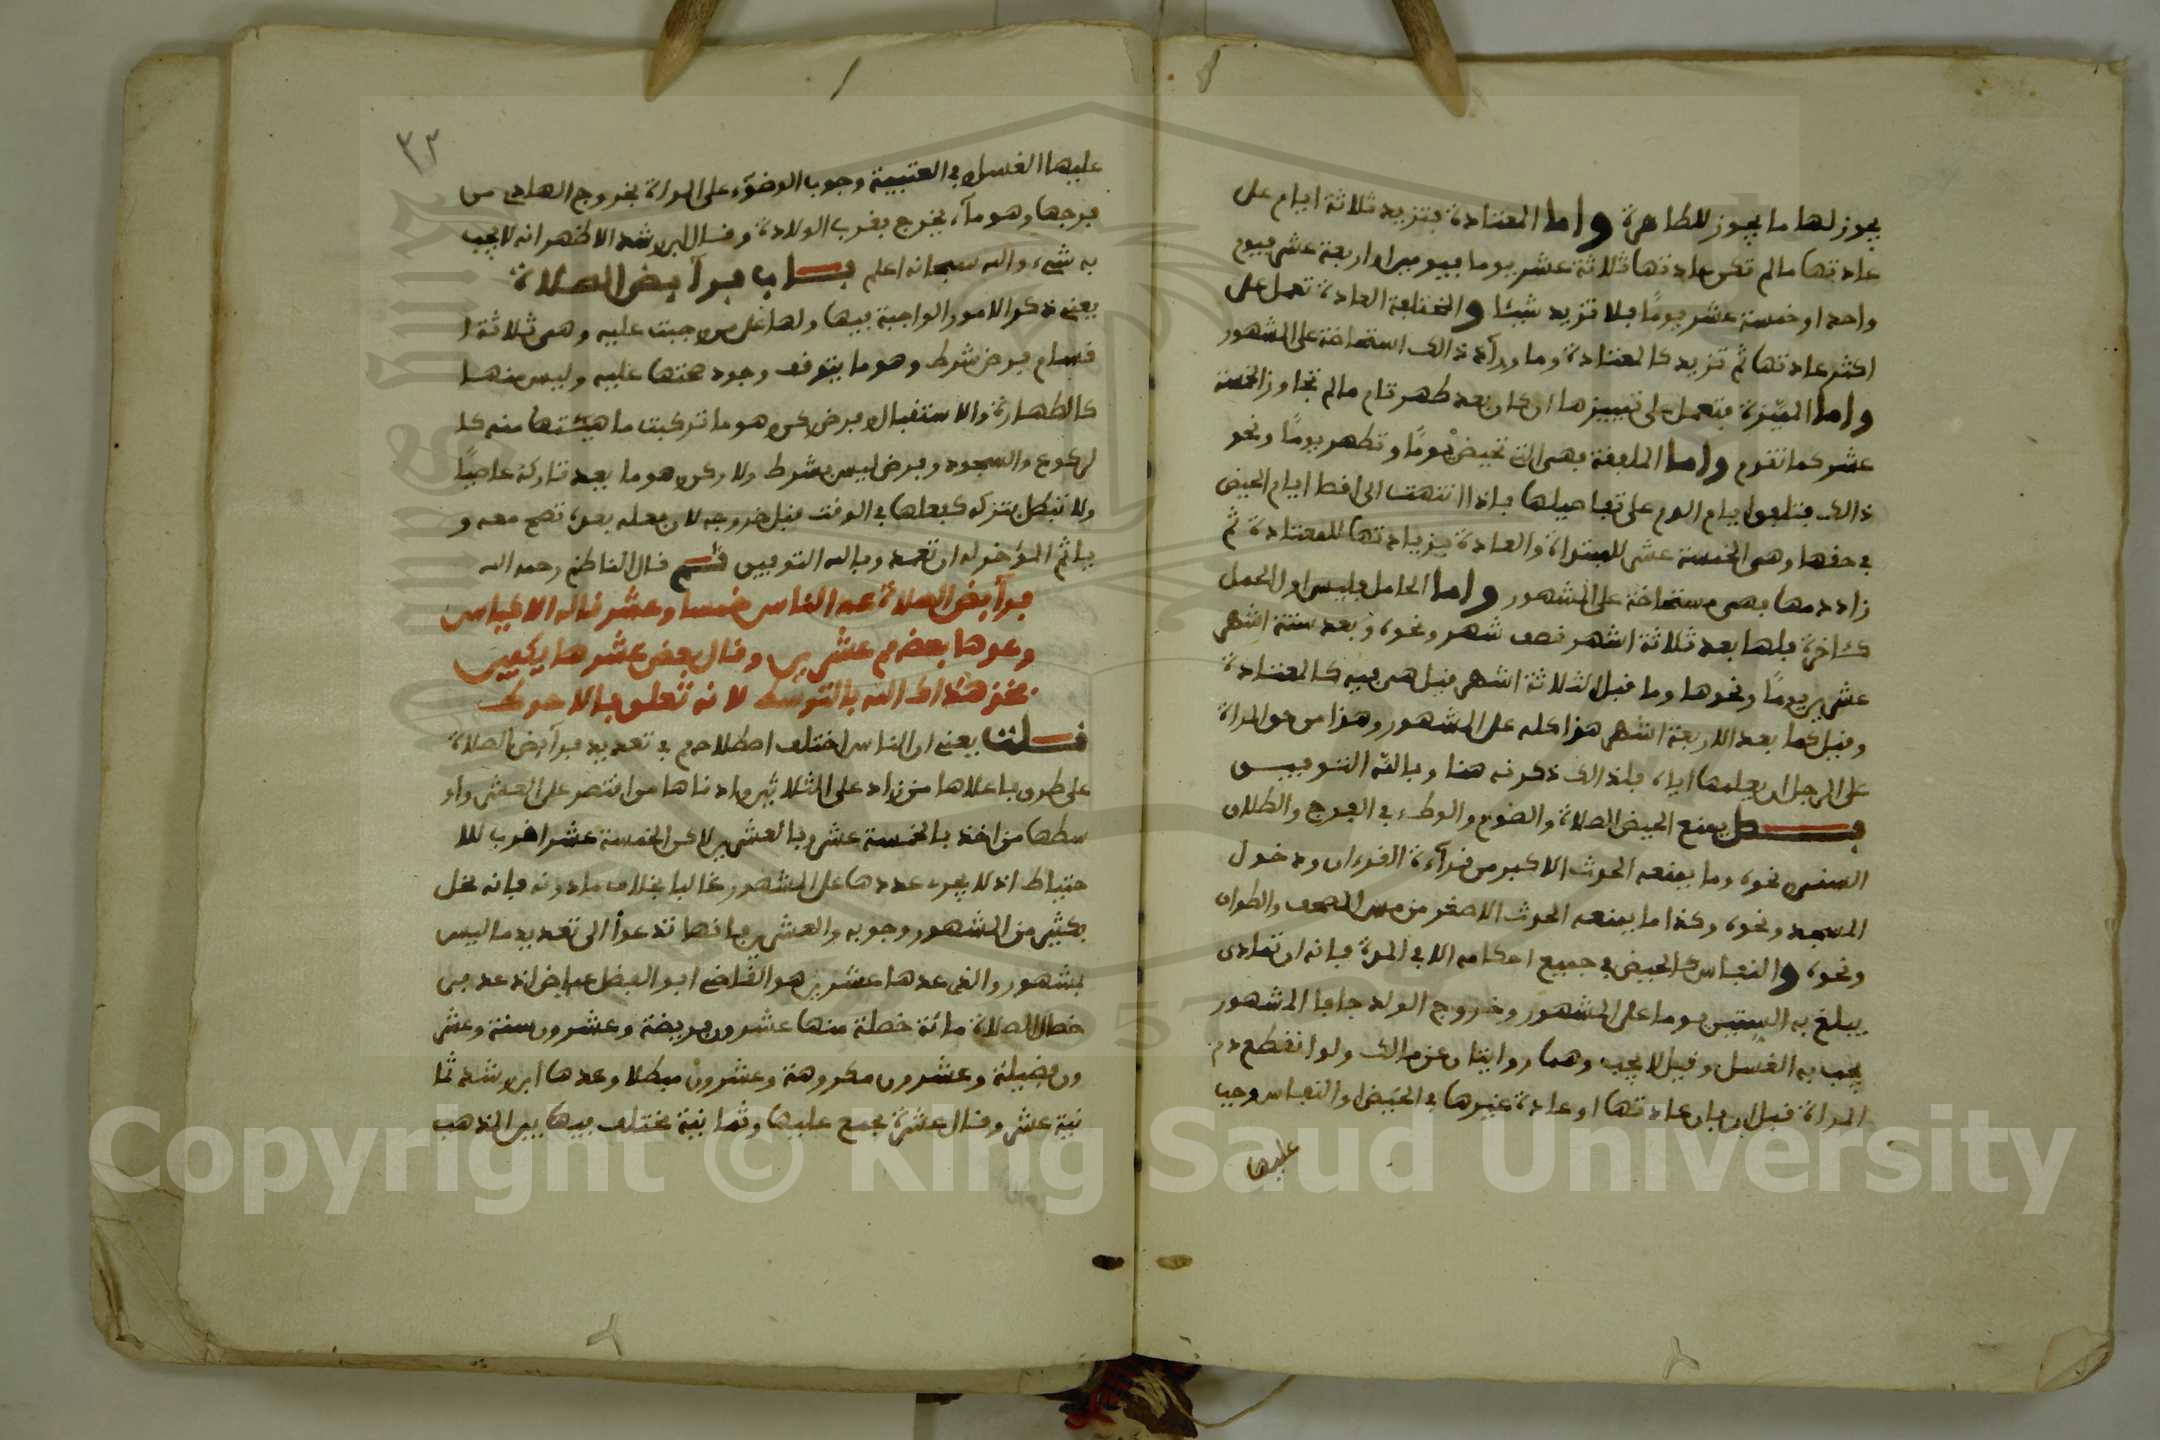 يجوز لها ما يجوز للطاهرة واما المعتادة فتزيد ثلاثة ايام على
عادتها ما لم تكن عادتها ثلاثة عشر يوما فيومين او اربعة عشر فيوم
واحد او خمسة عشر يومًا فلا تزيد شيئا والمختلفة العادة تعمل على
اكثر عادتها ثم تزيد كالمعتادة وما ورآء ذالك استحاضة على المشهور
واما المميّزة فتعمل على تمييزها ان كان بعد طهر تام ما لم تجاوز الخمسة
عشر كما تقدم واما الملفقة فهى التى تحيض يومًا وتطهر يومًا ونحو
ذالك فتلفق ايام الدم على تفاصيلها فاذا انتهت الى اقصا ايام الحيض
فى حقها وهى الخمسة عشر للمبتداة والعادة بزيادتها للمعتادة ثم
زاد دمها فهى مستحاضة على المشهور واما الحامل فليس اول الحمل
كاخره فلها بعد ثلاثة اشهر نصف شهر ونحوه وبعد ستة اشهر
عشرين يومًا ونحوها وما قبل الثلاثة اشهر قيل هى فيه كالمعتادة
وقيل كما بعد الاربعة اشهر هذا كله على المشهور وهذا من حق المراة
على الرجل ان يعلمها اياه فلذالك ذكرته هنا وبالله التوفيق
فصل يمنع الحيض الصلاة والصوم والوطء فى الفرج والطلاق
السنى ونحوه وما يمنعه الحدث الاكبر من قرآءة القرءان ودخول
المسجد ونحوه وكذا ما يمنعه الحدث الاصغر من مس المصحف والطواف
ونحوه والنفاس كالحيض فى جميع احكامه الا فى المدة فانه ان تمادى
يبلغ به الستين يوما على المشهور وخروج الولد جافا المشهور
يجب به الغسل وقيل لا يجب وهما روايتان عن مالك ولو انقطع دم
المراة قبل ابان عادتها او عادة غيرها فى الحيض او النفاس وجب
عليها
٣٢
عليها الغسل وفى العتبية وجوب الوضوء على المراة بخروج الهادى من
فرجها وهو مآء يخرج بقرب الولادة وقال ابن رشد الاظهر انه لا يجب
به شىء والله سبحانه اعلم باب فرآيض الصلاة
يعنى ذكر الامور الواجبة فيها ولها على من وجبت عليه وهى ثلاثة ا
قسام فرض شرط وهو ما يتوقف وجود صحتها عليه وليس منها
كالطهارة والاستقبال وفرض ركن وهو ما تركبت ماهيتها منه كا
لركوع والسجود وفرض ليس بشرط ولا ركن وهو ما يعد تاركه عاصيًا
ولا تبطل بتركه كفعلها فى الوقت قبل خروجه لان فعله بعده تصح معه و
ياثم المؤخر له ان تعمد وبالله التوفيق ثم قال الناظم رحمه الله
فرآيض الصلاة عد الناس خمسا وعشر قاله الاكياس
وعدها بعضهم عشرين وقال بعض عشرها يكفين
فخذ هداك الله بالتوسط لانه تعلق بالاحوط
قلت يعنى ان الناس اختلف اصطلاحهم فى تعديد فرآيض الصلاة
على طرق فاعلاها من زاد على الثلاثين وادناها من اقتصر على العشر واو
سطها من اخذ بالخمسة عشر وبالعشرين لاكن الخمسة عشر اقرب للا
حتياط اذ لا يجرء عددها على المشهور غالبا بخلاف ما دونه فانه يخل
بكثير من المشهور وجوبه والعشرين فانها تدعوا الى تعديد ما ليس
بمشهور والذى عدها عشرين هو القاضى ابو الفضل عياض اذ عد من
خصال الصلاة مائة خصلة منها عشرون فريضة وعشرون سنة وعشر
ون فضيلة وعشرون مكروهة وعشرون مبطلا وعدها ابن رشد ثما
نية عشر وقال عشرة مجمع عليها وثمانية مختلف فيها بين المذهب
Copyright © King Saud University